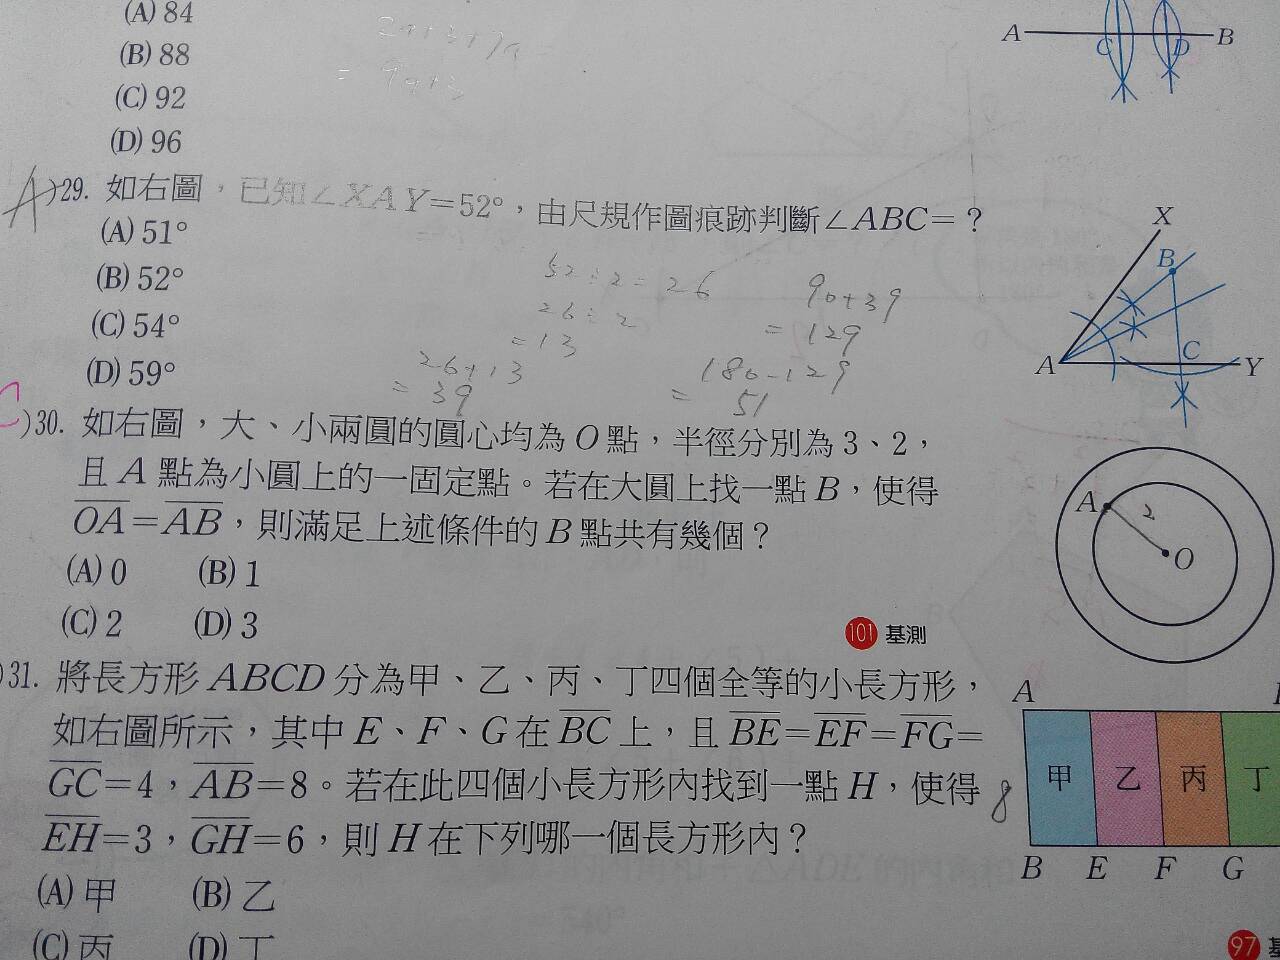 (A) 84
(B) 88
(C) 92
(D) 96
2a+3+7a
= 9a+3
A C D B
A )29. 如右圖，已知∠XAY=52°，由尺規作圖痕跡判斷∠ABC=？
(A) 51°
(B) 52°
(C) 54°
(D) 59°
52÷2=26
26÷2
=13
26+13
= 39
90+39
= 129
180-129
= 51
X
B
A C Y
C )30. 如右圖，大、小兩圓的圓心均為 O 點，半徑分別為 3、2，
且 A 點為小圓上的一固定點。若在大圓上找一點 B，使得
OA=AB，則滿足上述條件的 B 點共有幾個？
(A) 0 (B) 1
(C) 2 (D) 3
101 基測
A 2
O
)31. 將長方形 ABCD 分為甲、乙、丙、丁四個全等的小長方形，
如右圖所示，其中 E、F、G 在 BC 上，且 BE=EF=FG=
GC=4，AB=8。若在此四個小長方形內找到一點 H，使得
EH=3，GH=6，則 H 在下列哪一個長方形內？
(A) 甲 (B) 乙
(C) 丙 (D) 丁
A
8 甲 乙 丙 丁
B E F G
97 基